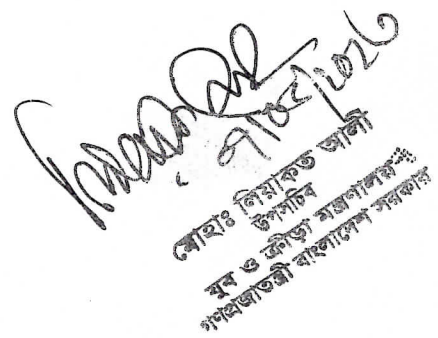 মোহাঃ লিয়াকত আলী
উপসচিব
যুব ও ক্রীড়া মন্ত্রণালয়
গণপ্রজাতন্ত্রী বাংলাদেশ সরকার